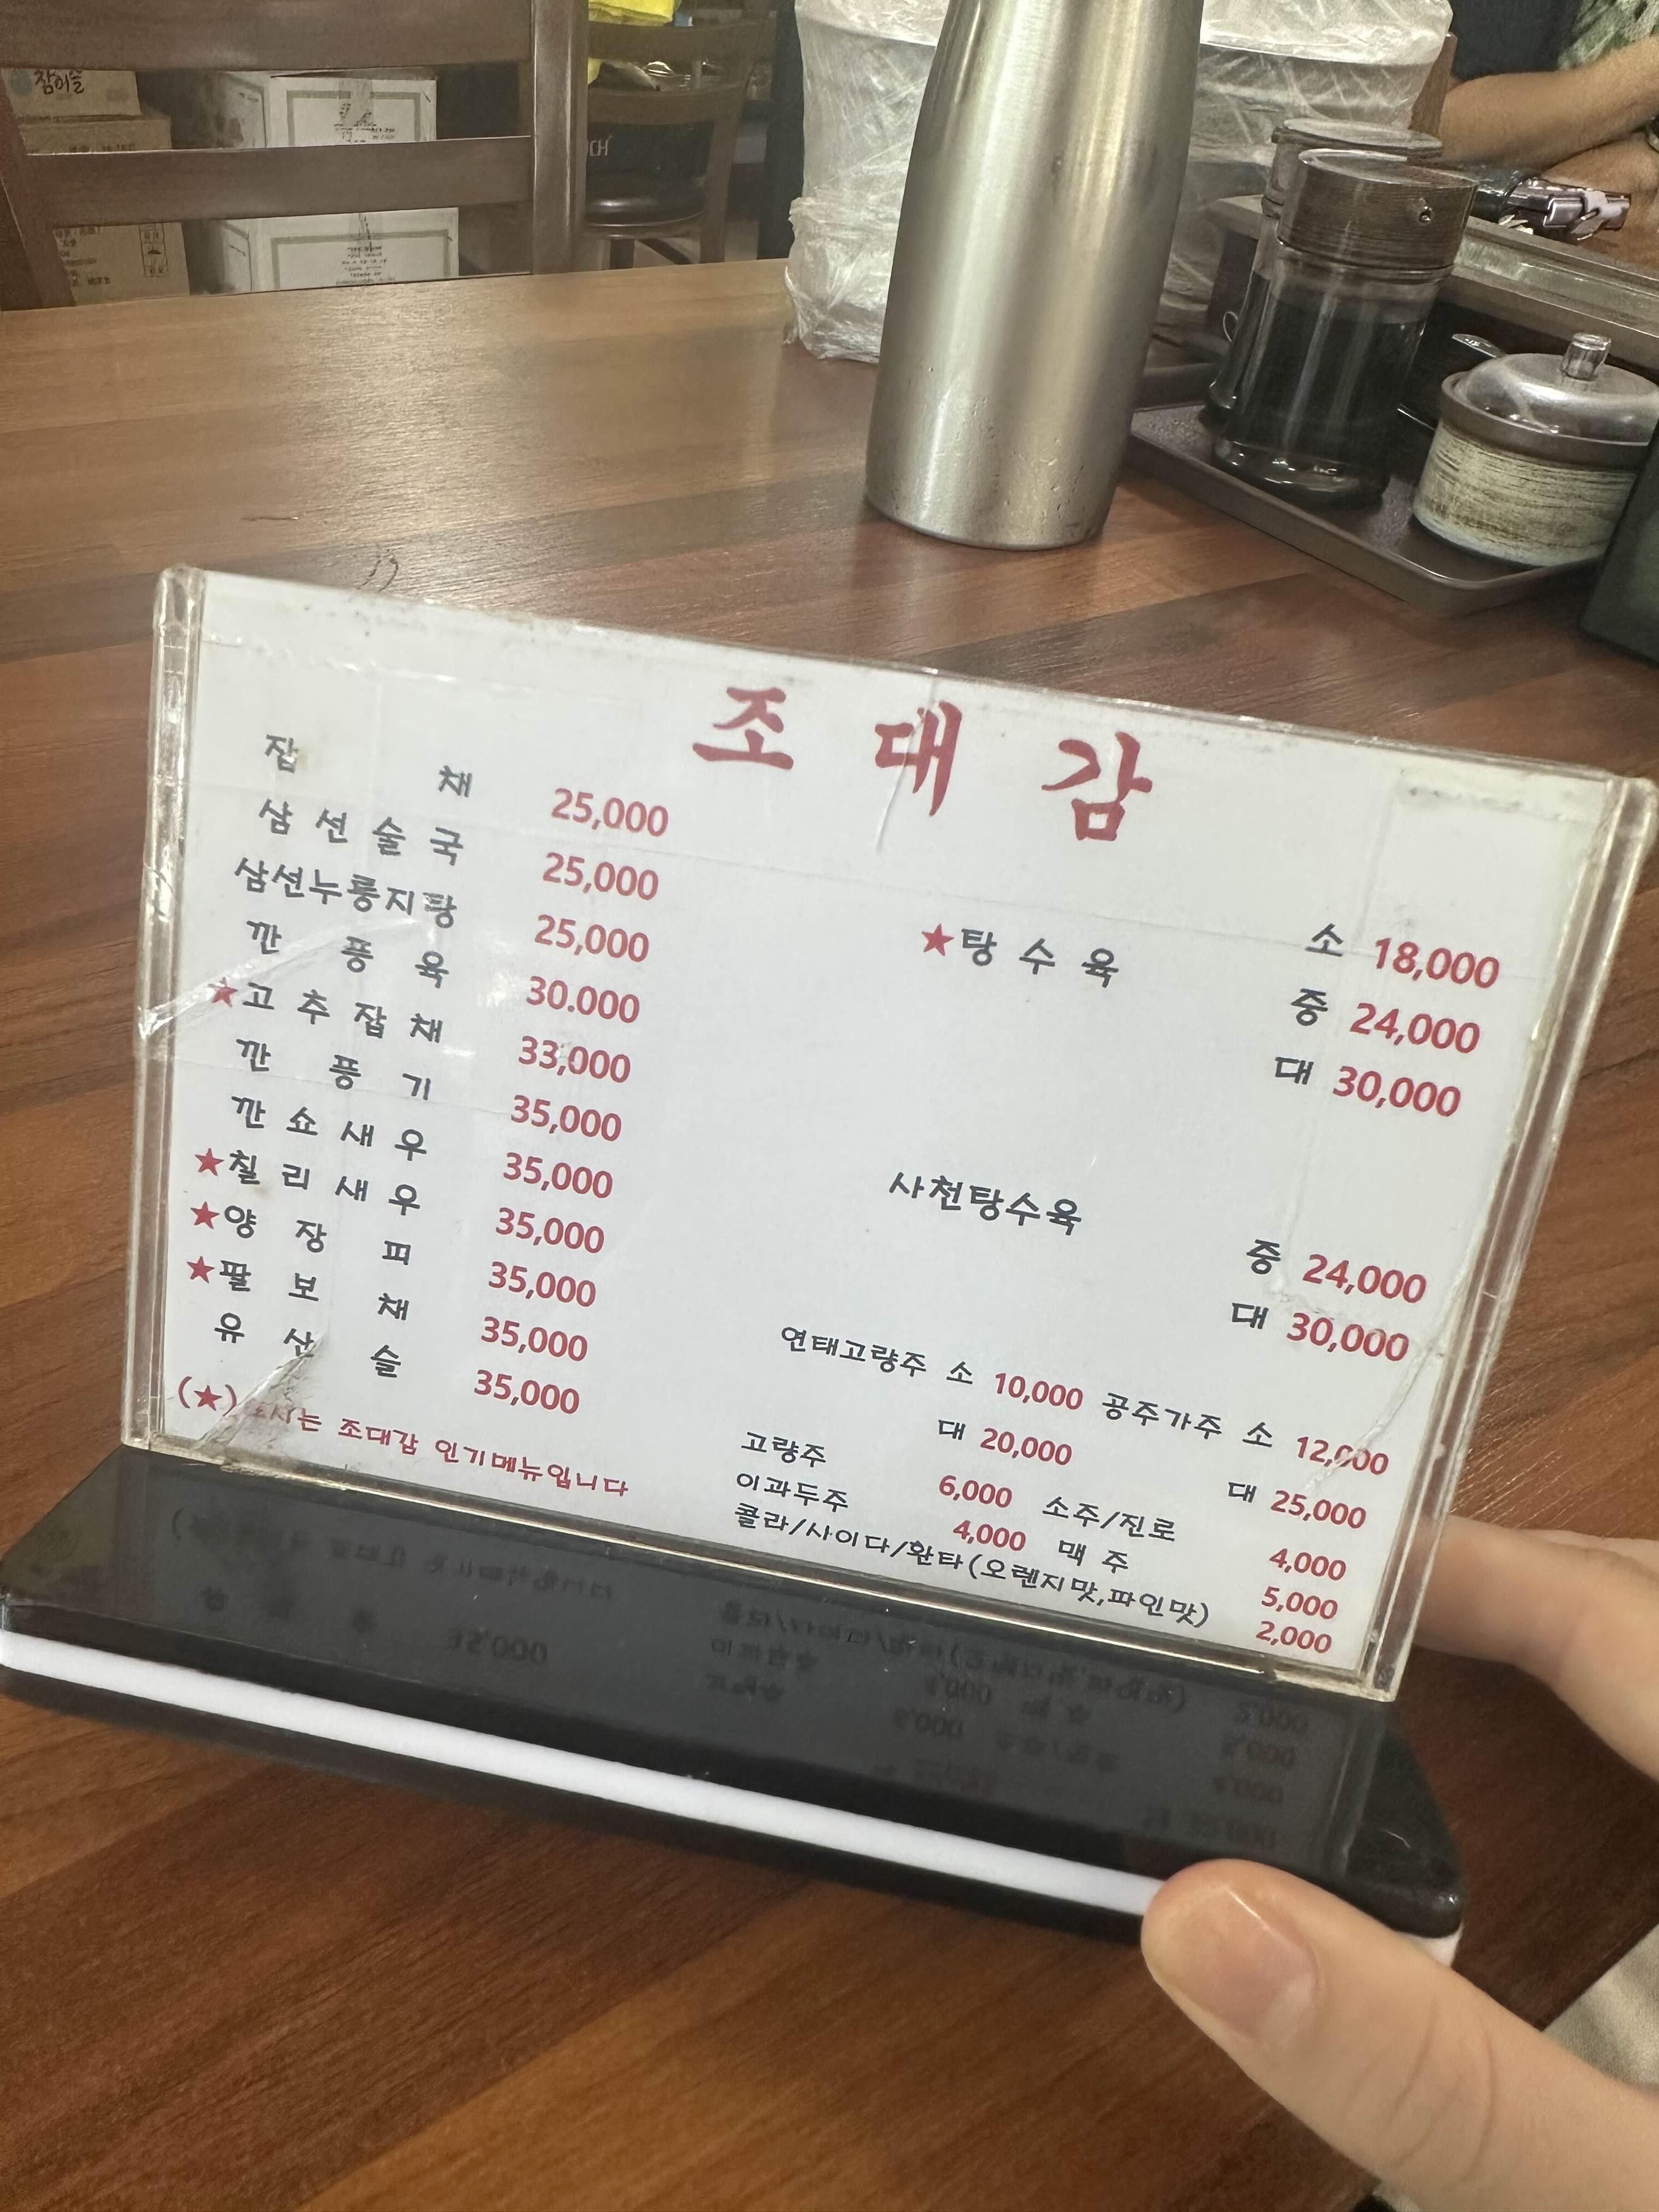 참이슬
조 대 감
잡 채 25,000
삼 선 술 국 25,000
삼선누룽지탕 25,000
깐 풍 육 30.000
★고 추 잡 채 33,000
깐 풍 기 35,000
깐 쇼 새 우 35,000
★칠 리 새 우 35,000
★양 장 피 35,000
★팔 보 채 35,000
유 산 슬 35,000
(★) 표시는 조대감 인기메뉴입니다
★탕 수 육 소 18,000
중 24,000
대 30,000
사천탕수육
중 24,000
대 30,000
연태고량주 소 10,000 공주가주 소 12,000
대 20,000 대 25,000
고량주 6,000 소주/진로 4,000
이과두주 4,000 맥 주 5,000
콜라/사이다/환타(오렌지맛,파인맛) 2,000